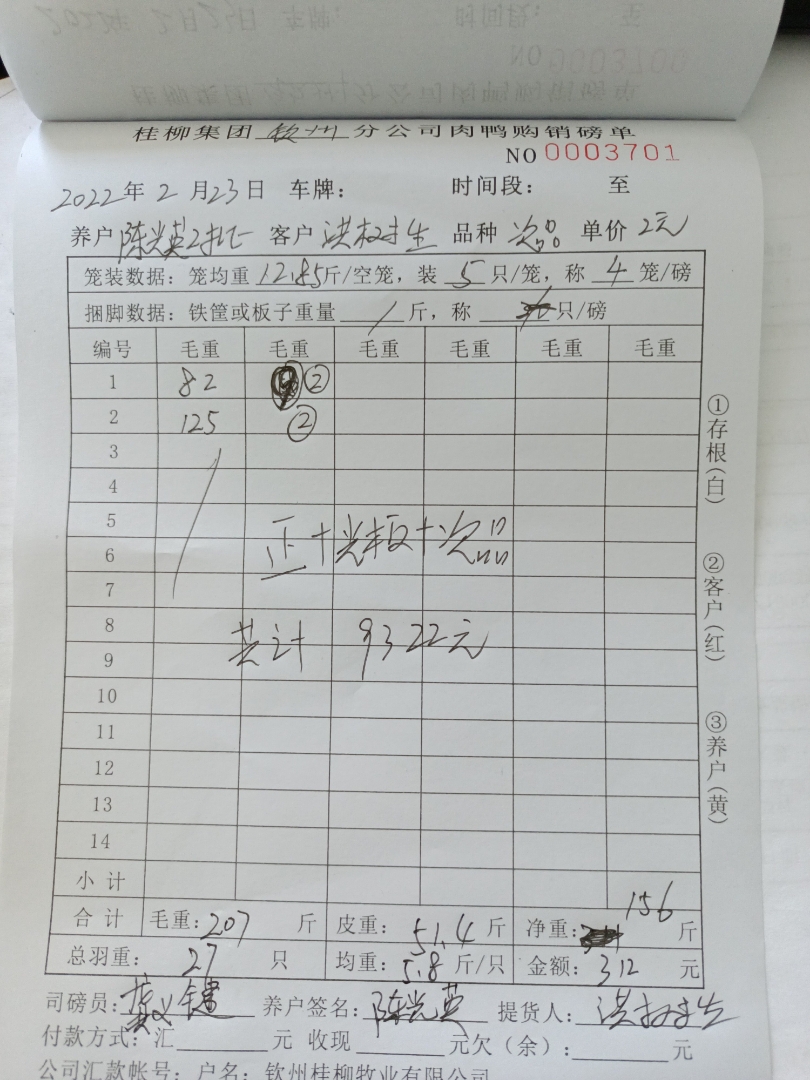 桂柳集团 钦州 分公司肉鸭购销磅单
NO 0003701
2022年2月23日 车牌: 时间段: 至
养户 陈光英2批 客户 洪树生 品种 次品 单价 2元
笼装数据: 笼均重 12.85斤/空笼, 装 5 只/笼, 称 4 笼/磅
捆脚数据: 铁筐或板子重量 / 斤, 称 只/磅
编号 毛重 毛重 毛重 毛重 毛重 毛重
1 82 ②
2 125 ②
3
4
5
正+光板+次品
6
7
8
共计 9322元
9
10
11
12
13
14
小计
合计 毛重: 207 斤 皮重: 51.4 斤 净重: 156 斤
总羽重: 27 只 均重: 5.8 斤/只 金额: 312 元
司磅员: 养户签名: 陈光英 提货人: 洪树生
付款方式: 汇 元 收现 元欠(余): 元
公司汇款帐号: 户名: 钦州桂柳牧业有限公司
①存根(白)
②客户(红)
③养户(黄)